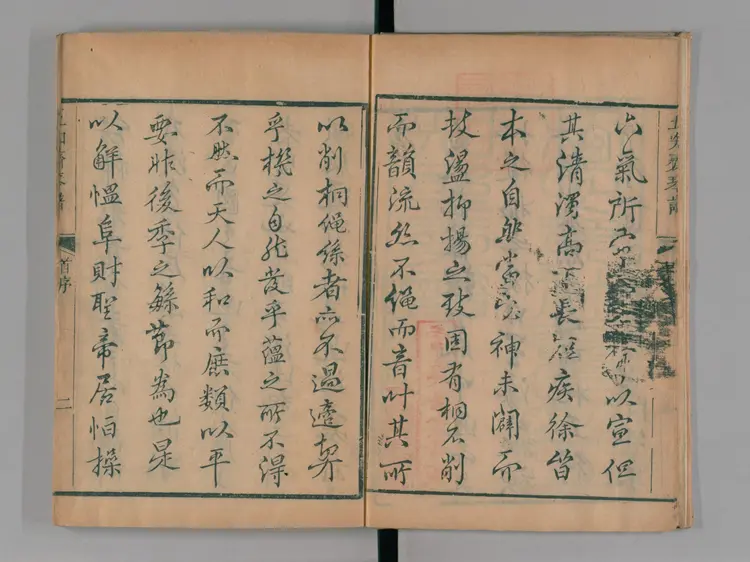 六氣所 以宣但
其清濁高 長短疾徐皆
本之自然 神未闢而
鼓盪抑揚之致固有桐不削
而韻流丝不繩而音叶其所
以削桐繩絲者亦不過遼契
乎機之自然發乎蘊之所不得
不然而天人以和而庶類以平
要非後季之繇節為也是
以解慍阜財聖帝居恒操
首序
二